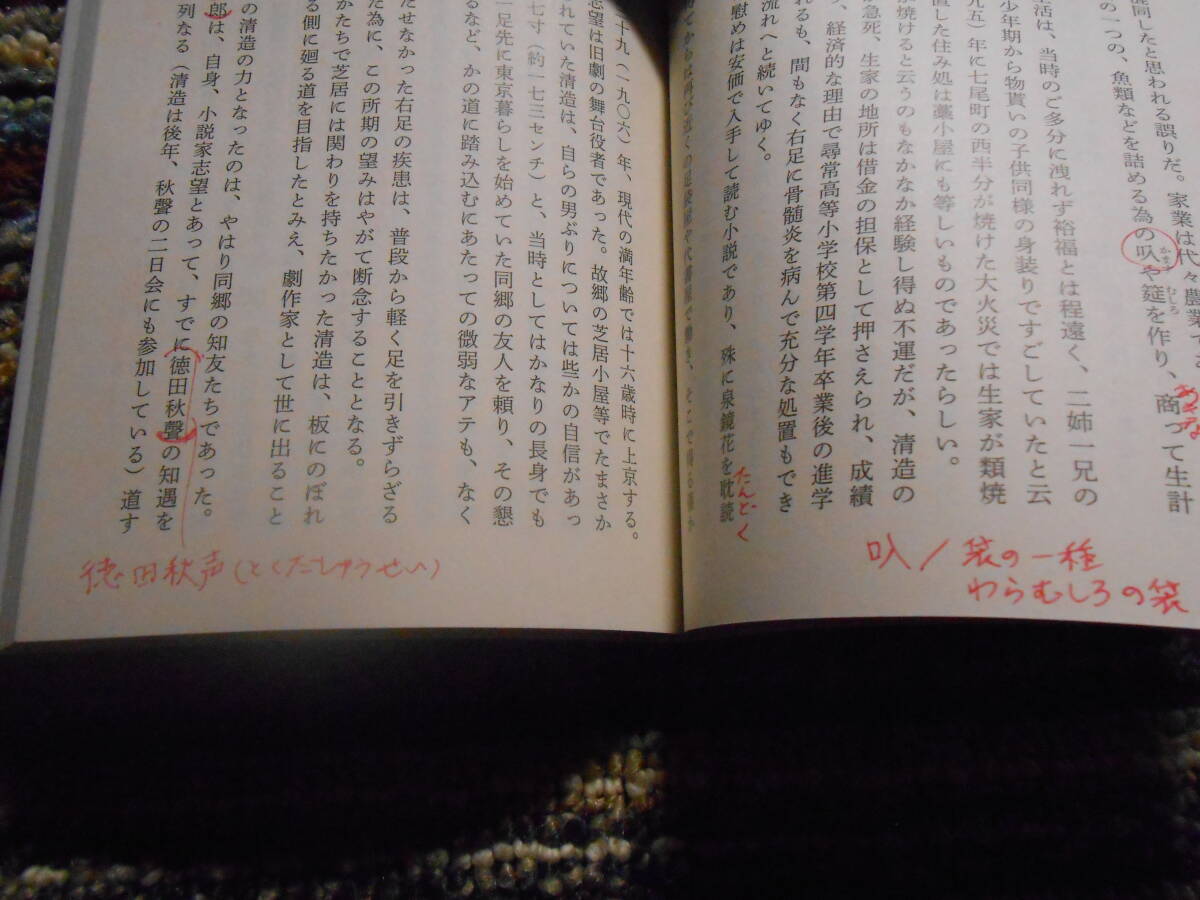 混同したと思われる誤りだ。家業は代々農業で
の一つの、魚類などを詰める為の叺や筵を作り、商って生計
かます
むしろ
生活は、当時のご多分に洩れず裕福とは程遠く、二姉一兄の
少年期から物貰いの子供同様の身装りですごしていたと云
五）年に七尾町の西半分が焼けた大火災では生家が類焼
置した住み処は藁小屋にも等しいものであったらしい。
焼けると云うのもなかなか経験し得ぬ不運だが、清造の
急死、生家の地所は借金の担保として押さえられ、成績
、経済的な理由で尋常高等小学校第四学年卒業後の進学
れるも、間もなく右足に骨髄炎を病んで充分な処置もでき
慰めは安価で入手して読む小説であり、殊に泉鏡花を耽読
流れへと続いてゆく。
たんどく
あきな
叺／袋の一種
わらむしろの袋
十九（一九〇六）年、現代の満年齢では十六歳時に上京する。
志望は旧劇の舞台役者であった。故郷の芝居小屋等でたまさか
れていた清造は、自らの男ぶりについては些かの自信があっ
七寸（約一七三センチ）と、当時としてはかなりの長身でも
一足先に東京暮らしを始めていた同郷の友人を頼り、その懇
るなど、かの道に踏み込むにあたっての微弱なアテも、なく
たせなかった右足の疾患は、普段から軽く足を引きずらざる
た為に、この所期の望みはやがて断念することとなる。
かたちで芝居には関わりを持ちたかった清造は、板にのぼれ
る側に廻る道を目指したとみえ、劇作家として世に出ること
の清造の力となったのは、やはり同郷の知友たちであった。
郎は、自身、小説家志望とあって、すでに徳田秋聲の知遇を
列なる（清造は後年、秋聲の二日会にも参加している）道す
徳田秋声（とくだしゅうせい）